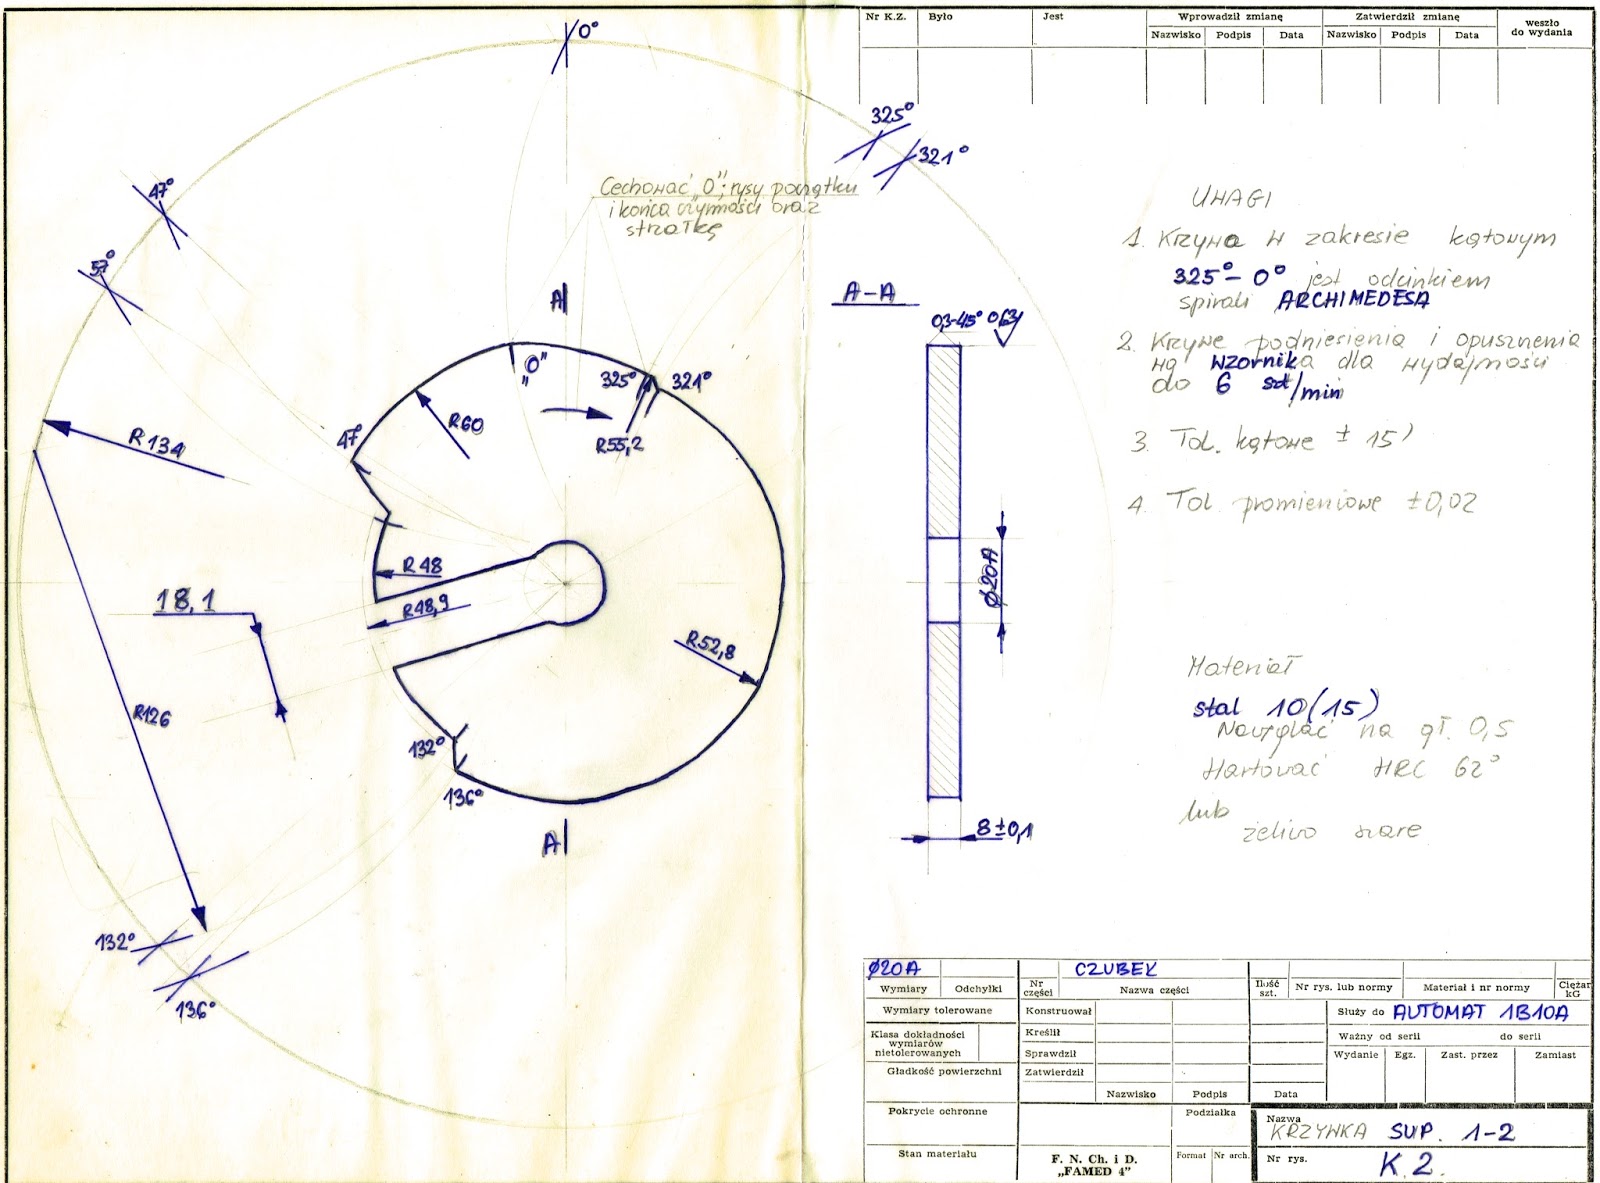 Nr K.Z.
Było
Jest
Wprowadził zmianę
Zatwierdził zmianę
weszło
do wydania
Nazwisko
Podpis
Data
Nazwisko
Podpis
Data
0°
325°
321°
47°
57°
Cechować „0”; rysy początku
i końca czynności oraz
strzałkę
A
„0”
325°
321°
R60
R55,2
47°
R134
R48
R48,9
18,1
R52,8
R126
132°
136°
A
132°
136°
A-A
0,3-45°
0,63
ø20A
8±0,1
UWAGI
1. Krzywa w zakresie kątowym
325°- 0° jest odcinkiem
spirali ARCHIMEDESA
2. Krzywe podniesienia i opuszczenia
wg wzornika dla wydajności
do 6 szt/min
3. Tol. kątowe ± 15'
4. Tol. promieniowe ±0,02
Materiał
stal 10(15)
Nawęglać na gł. 0,5
Hartować HRC 62°
lub
żeliwo szare
ø20A
CZUBEK
Wymiary
Odchyłki
Nr
części
Nazwa części
Ilość
szt.
Nr rys. lub normy
Materiał i nr normy
Ciężar
kG
Wymiary tolerowane
Konstruował
Służy do AUTOMAT 1B10A
Klasa dokładności
wymiarów
nietolerowanych
Kreślił
Ważny od serii
do serii
Sprawdził
Wydanie
Egz.
Zast. przez
Zamiast
Gładkość powierzchni
Zatwierdził
Nazwisko
Podpis
Data
Pokrycie ochronne
Podziałka
Nazwa
KRZYWKA SUP. 1-2
Stan materiału
F. N. Ch. i D.
„FAMED 4”
Format
Nr arch.
Nr rys.
K.2.